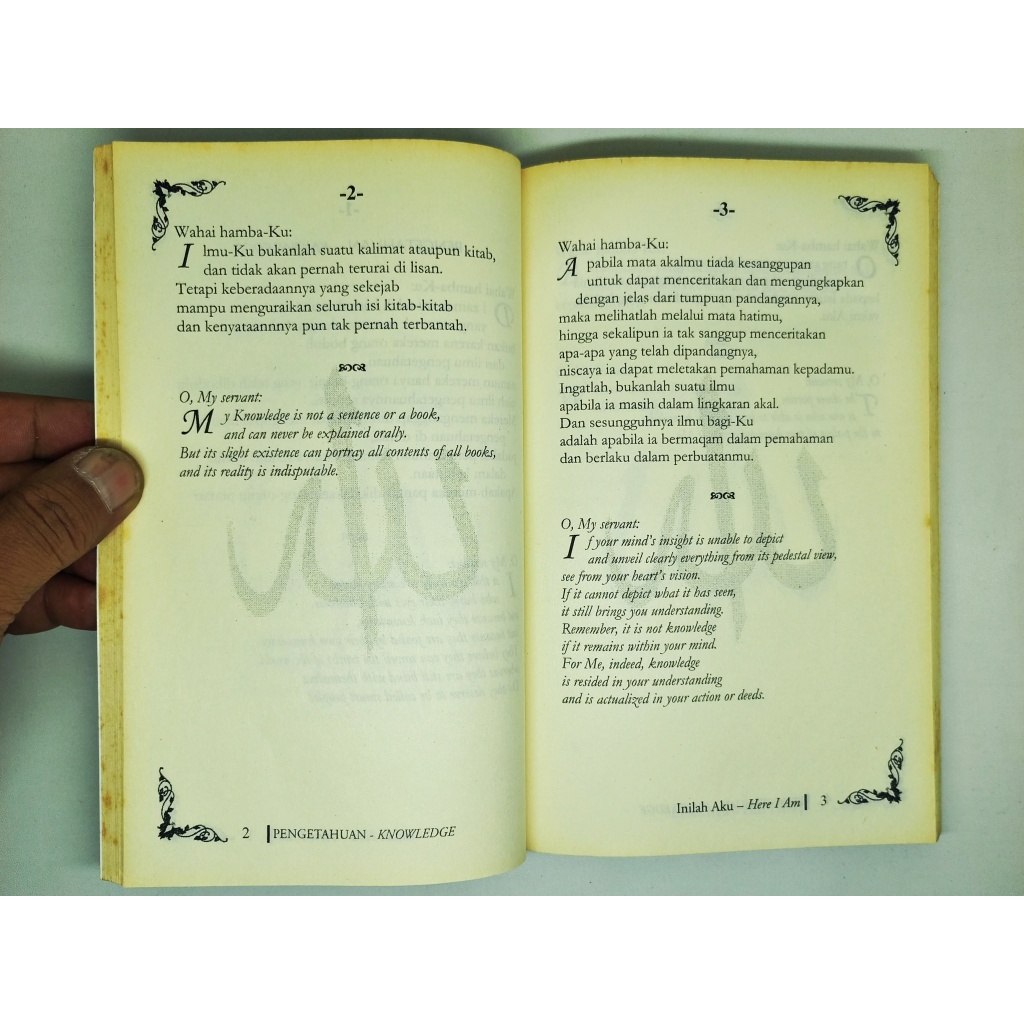 -2-
Wahai hamba-Ku:
Ilmu-Ku bukanlah suatu kalimat ataupun kitab,
dan tidak akan pernah terurai di lisan.
Tetapi keberadaannya yang sekejab
mampu menguraikan seluruh isi kitab-kitab
dan kenyataannnya pun tak pernah terbantah.
O, My servant:
My Knowledge is not a sentence or a book,
and can never be explained orally.
But its slight existence can portray all contents of all books,
and its reality is indisputable.
2 PENGETAHUAN - KNOWLEDGE
-3-
Wahai hamba-Ku:
Apabila mata akalmu tiada kesanggupan
untuk dapat menceritakan dan mengungkapkan
dengan jelas dari tumpuan pandangannya,
maka melihatlah melalui mata hatimu,
hingga sekalipun ia tak sanggup menceritakan
apa-apa yang telah dipandangnya,
niscaya ia dapat meletakan pemahaman kepadamu.
Ingatlah, bukanlah suatu ilmu
apabila ia masih dalam lingkaran akal.
Dan sesungguhnya ilmu bagi-Ku
adalah apabila ia bermaqam dalam pemahaman
dan berlaku dalam perbuatanmu.
O, My servant:
If your mind's insight is unable to depict
and unveil clearly everything from its pedestal view,
see from your heart's vision.
If it cannot depict what it has seen,
it still brings you understanding.
Remember, it is not knowledge
if it remains within your mind.
For Me, indeed, knowledge
is resided in your understanding
and is actualized in your action or deeds.
Inilah Aku – Here I Am 3